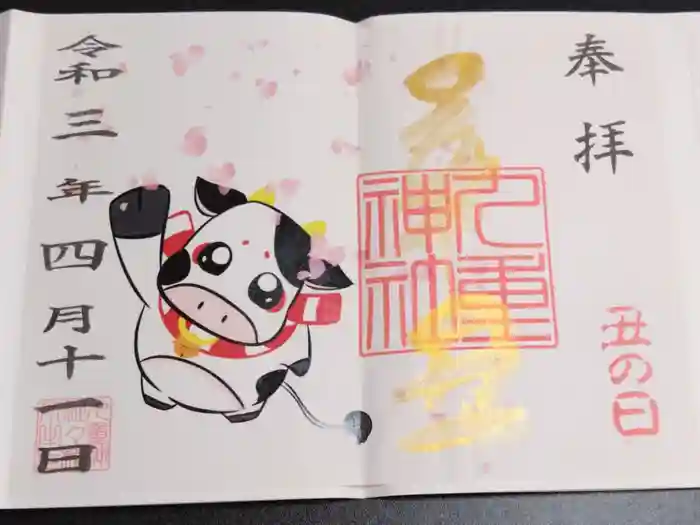 奉拝
丑の日
九重
神社
令和三年四月十一日